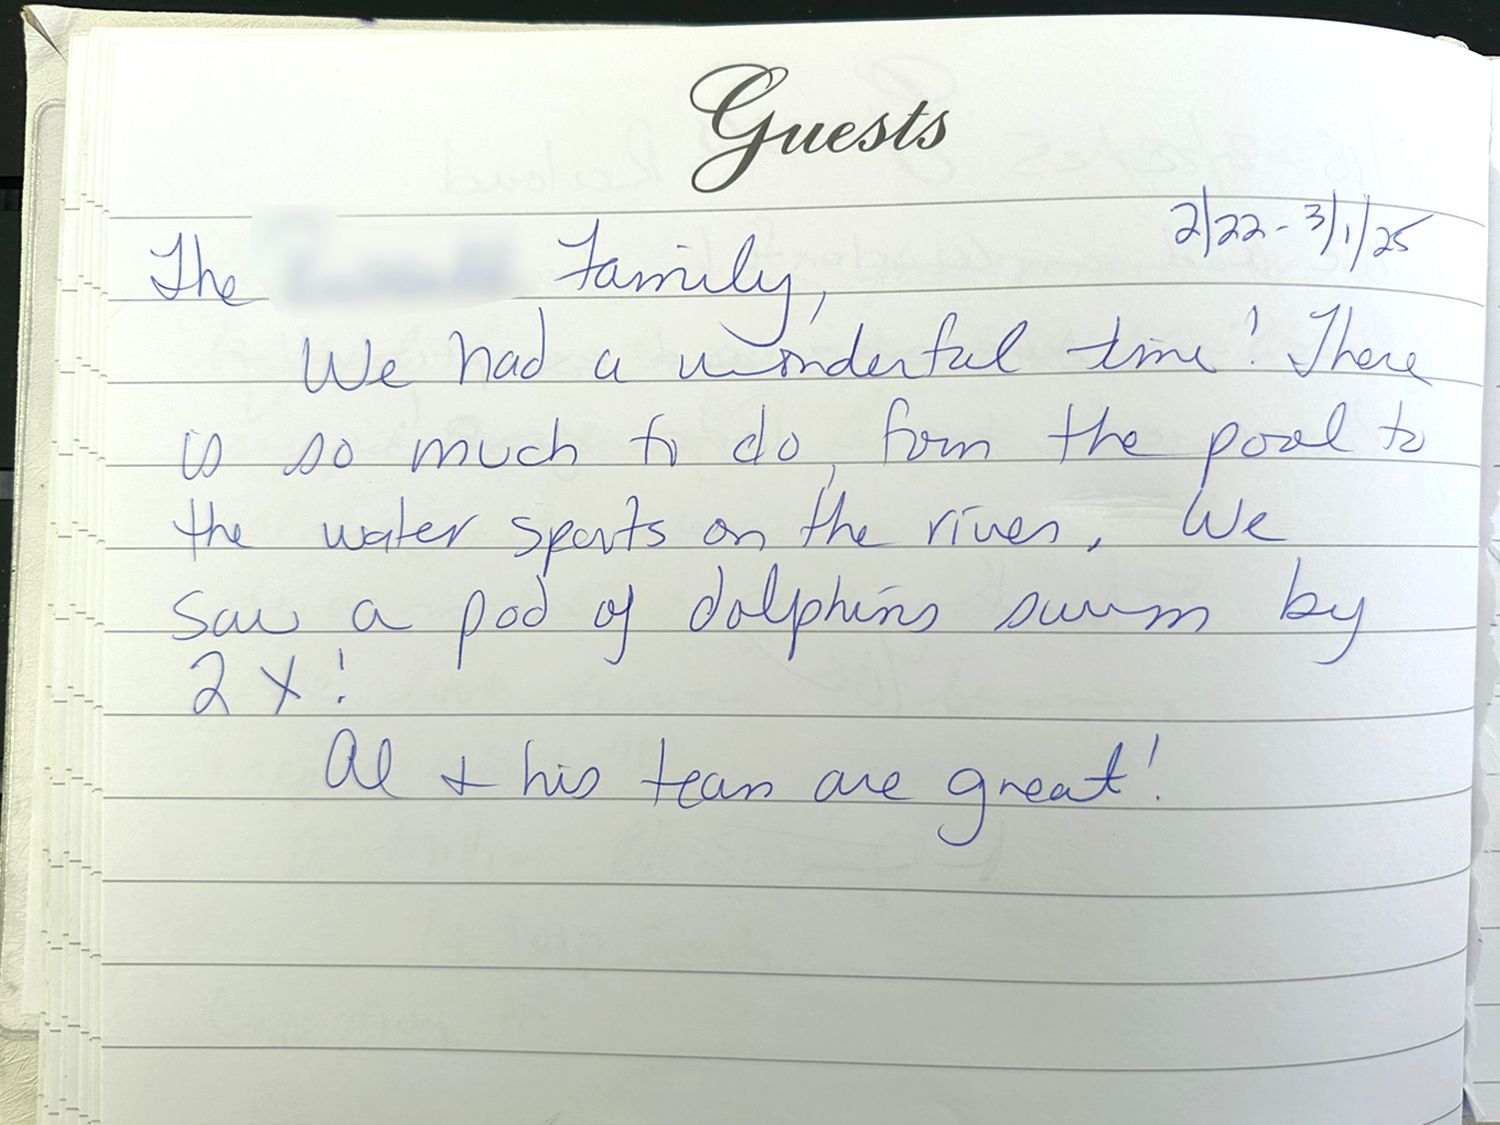 Guests
2/22 - 3/1/25
The Family,
We had a wonderful time! There
is so much to do, from the pool to
the water sports on the river. We
saw a pod of dolphins swim by
2x!
Al + his team are great!